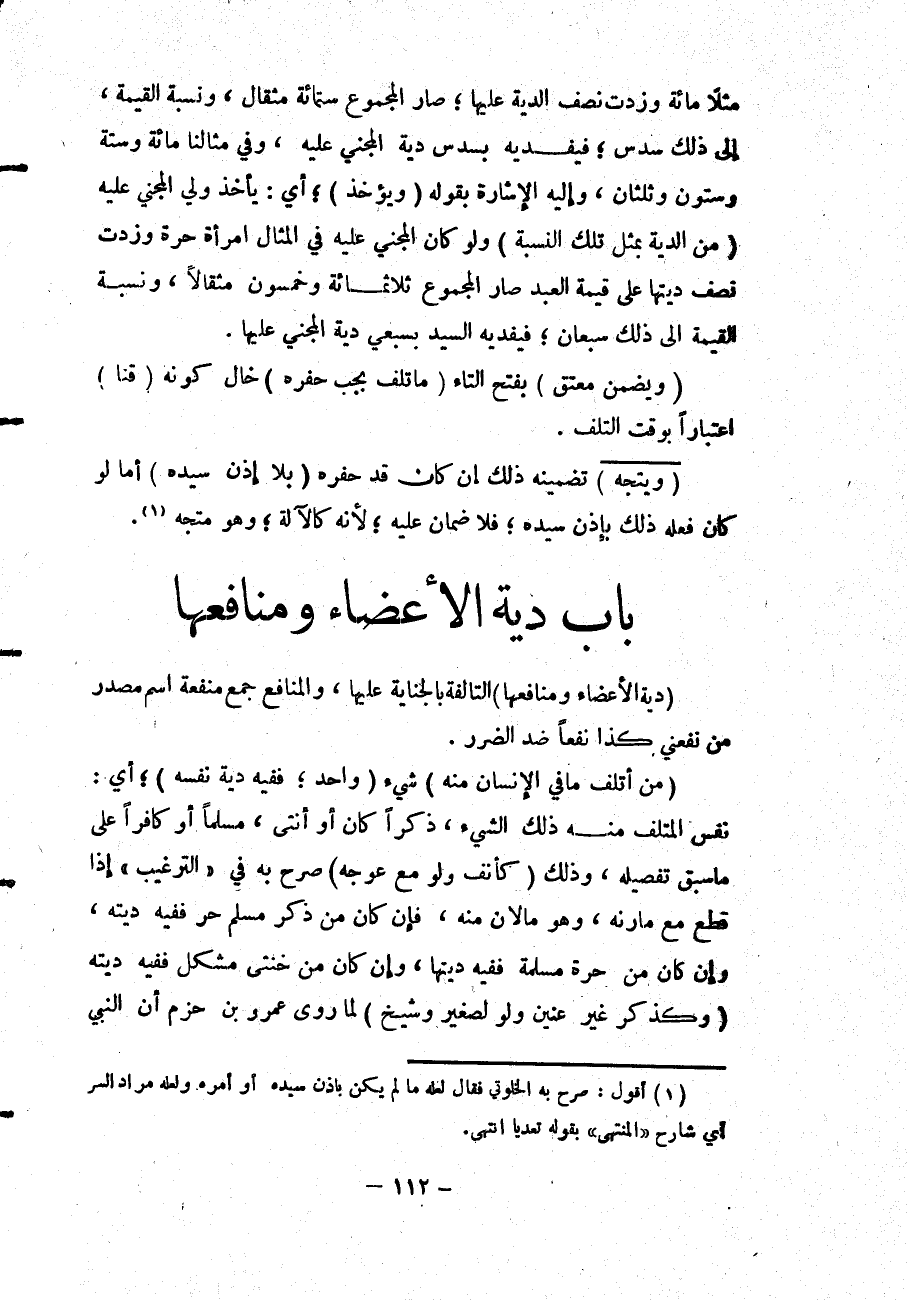 مثلًا مائة وزدت نصف الدية عليها ؛ صار المجموع ستمائة مثقال ، ونسبة القيمة ،
إلى ذلك سدس ؛ فيفديه بسدس دية المجني عليه ، وفي مثالنا مائة وستة
وستون وثلثان ، وإليه الإشارة بقوله ( ويؤخذ ) ؛ أي : يأخذ ولي المجني عليه
( من الدية بمثل تلك النسبة ) ولو كان المجني عليه في المثال امرأة حرة وزدت
نصف ديتها على قيمة العبد صار المجموع ثلاثمائة وخمسون مثقالاً ، ونسبة
القيمة الى ذلك سبعان ؛ فيفديه السيد بسبعي دية المجني عليها .
( ويضمن معتق ) بفتح التاء ( ماتلف بجب حفره ) حال كونه ( قنا )
اعتباراً بوقت التلف .
( ويتجه ) تضمينه ذلك ان كان قد حفره ( بلا إذن سيده ) أما لو
كان فعله ذلك بإذن سيده ؛ فلا ضمان عليه ؛ لأنه كالآلة ؛ وهو متجه (١) .
باب دية الأعضاء ومنافعها
( دية الأعضاء ومنافعها ) التالفة بالجناية عليها ، والمنافع جمع منفعة اسم مصدر
من نفعني كذا نفعاً ضد الضرر .
( من أتلف مافي الإنسان منه ) شيء ( واحد ؛ ففيه دية نفسه ) ؛ أي :
نفس المتلف منه ذلك الشيء ، ذكراً كان أو أنثى ، مسلماً أو كافراً على
ماسبق تفصيله ، وذلك ( كأنف ولو مع عوجه ) صرح به في « الترغيب » إذا
قطع مع مارنه ، وهو مالان منه ، فإن كان من ذكر مسلم حر ففيه ديته ،
وإن كان من حرة مسلمة ففيه ديتها ، وإن كان من خنثى مشكل ففيه ديته
( وكذكر غير عنين ولو لصغير وشيخ ) لما روى عمرو بن حزم أن النبي
(١) أقول : صرح به الخلوتي فقال لعله ما لم يكن باذن سيده أو أمره ولعله مراد الشر
أي شارح «المنتهى» بقوله تعديا انتهى.
- ١١٢ -